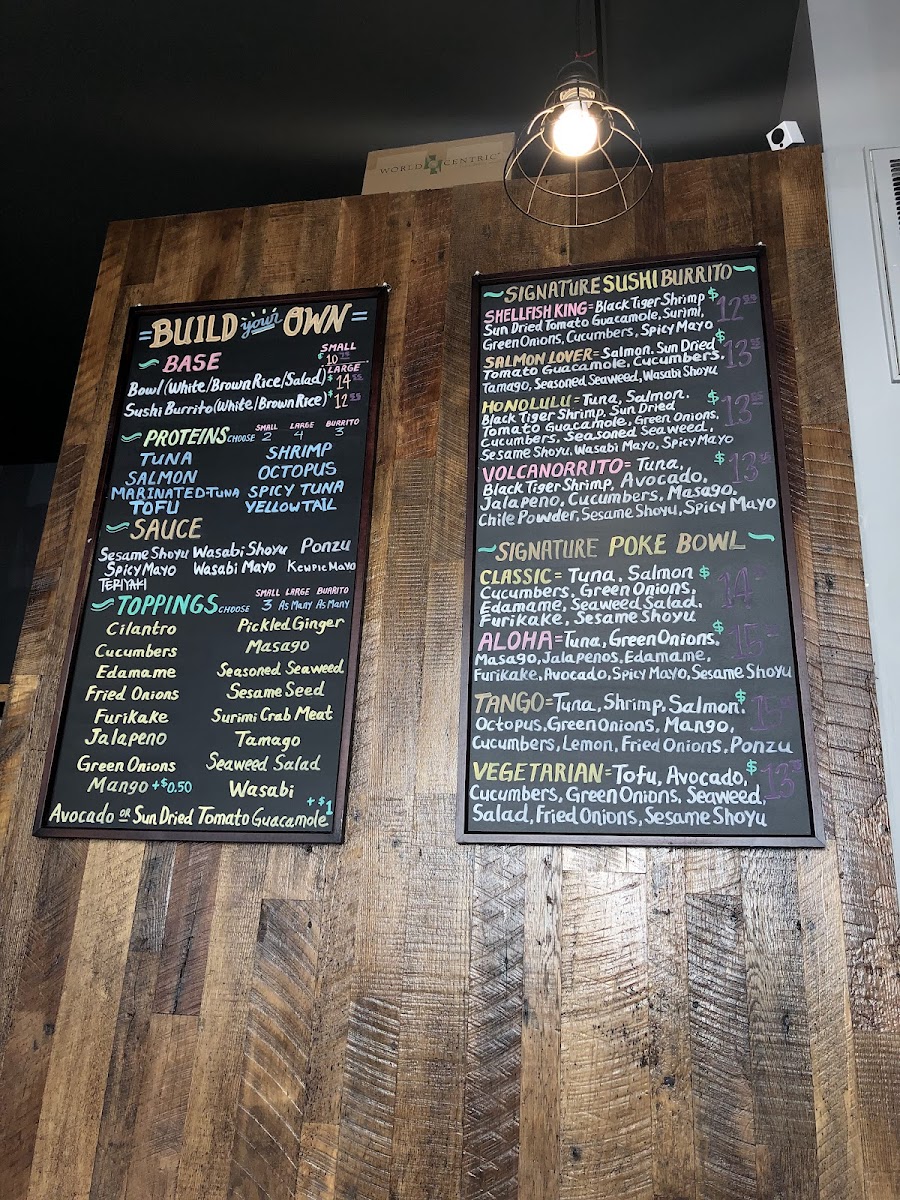 WORLD CENTRIC
BUILD your OWN
BASE
SMALL
$10
LARGE
Bowl (White/Brown Rice/Salad) $14
Sushi Burrito (White/Brown Rice) $12
PROTEINS CHOOSE SMALL 2 LARGE 4 BURRITO 3
TUNA SHRIMP
SALMON OCTOPUS
MARINATED-TUNA SPICY TUNA
TOFU YELLOWTAIL
SAUCE
Sesame Shoyu Wasabi Shoyu Ponzu
Spicy Mayo Wasabi Mayo Kewpie Mayo
TERIYAKI
TOPPINGS CHOOSE SMALL 3 LARGE As Many BURRITO As Many
Cilantro Pickled Ginger
Cucumbers Masago
Edamame Seasoned Seaweed
Fried Onions Sesame Seed
Furikake Surimi Crab Meat
Jalapeno Tamago
Green Onions Seaweed Salad
Mango +$0.50 Wasabi
Avocado or Sun Dried Tomato Guacamole +$1
SIGNATURE SUSHI BURRITO
SHELLFISH KING = Black Tiger Shrimp $12
Sun Dried Tomato Guacamole, Surimi,
Green Onions, Cucumbers, Spicy Mayo
SALMON LOVER = Salmon, Sun Dried $13
Tomato Guacamole, Cucumbers,
Tamago, Seasoned Seaweed, Wasabi Shoyu
HONOLULU = Tuna, Salmon, $13
Black Tiger Shrimp, Sun Dried
Tomato Guacamole, Green Onions,
Cucumbers, Seasoned Seaweed,
Sesame Shoyu, Wasabi Mayo, Spicy Mayo
VOLCANORRITO = Tuna, $13
Black Tiger Shrimp, Avocado,
Jalapeno, Cucumbers, Masago,
Chile Powder, Sesame Shoyu, Spicy Mayo
SIGNATURE POKE BOWL
CLASSIC = Tuna, Salmon $14
Cucumbers, Green Onions,
Edamame, Seaweed Salad,
Furikake, Sesame Shoyu
ALOHA = Tuna, Green Onions, $15
Masago, Jalapenos, Edamame,
Furikake, Avocado, Spicy Mayo, Sesame Shoyu
TANGO = Tuna, Shrimp, Salmon, $15
Octopus, Green Onions, Mango,
Cucumbers, Lemon, Fried Onions, Ponzu
VEGETARIAN = Tofu, Avocado, $13
Cucumbers, Green Onions, Seaweed,
Salad, Fried Onions, Sesame Shoyu